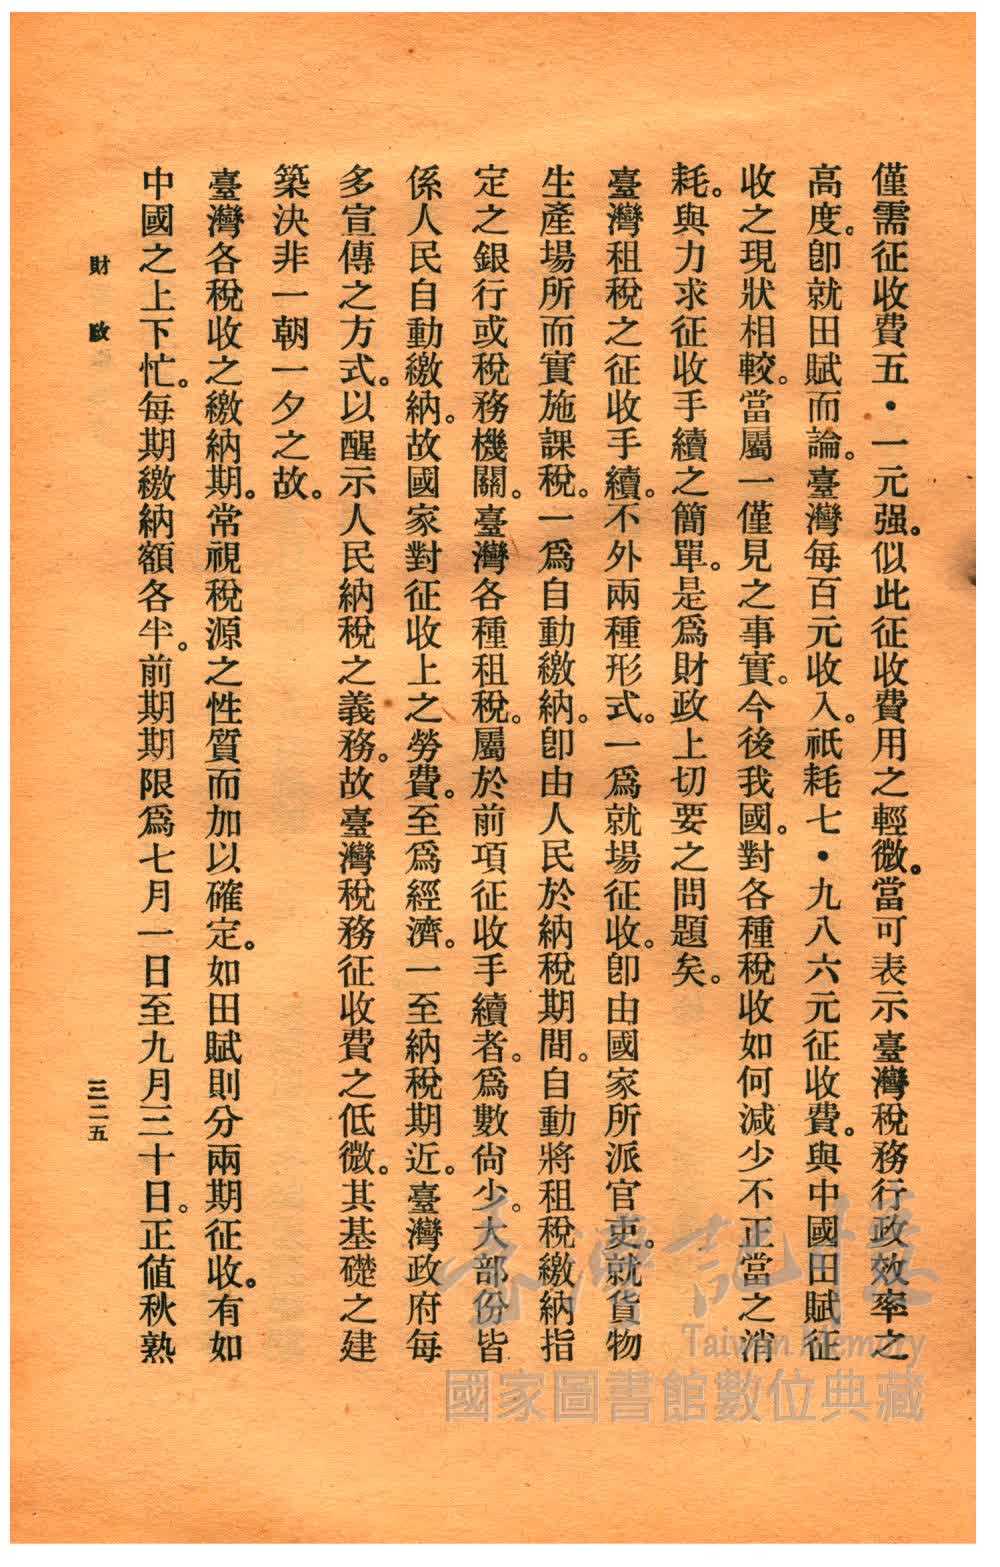 僅需征收費五・一元强。似此征收費用之輕微。當可表示臺灣稅務行政效率之
高度。卽就田賦而論。臺灣每百元收入。祇耗七・九八六元征收費。與中國田賦征
收之現狀相較。當屬一僅見之事實。今後我國。對各種稅收如何減少不正當之消
耗。與力求征收手續之簡單。是爲財政上切要之問題矣。
臺灣租稅之征收手續。不外兩種形式。一爲就場征收。卽由國家所派官吏。就貨物
生產場所而實施課稅。一爲自動繳納。卽由人民於納稅期間。自動將租稅繳納指
定之銀行或稅務機關。臺灣各種租稅。屬於前項征收手續者。爲數尙少。大部份皆
係人民自動繳納。故國家對征收上之勞費。至爲經濟。一至納稅期近。臺灣政府每
多宣傳之方式。以醒示人民納稅之義務。故臺灣稅務征收費之低微。其基礎之建
築決非一朝一夕之故。
臺灣各稅收之繳納期。常視稅源之性質而加以確定。如田賦則分兩期征收。有如
中國之上下忙。每期繳納額各半。前期期限爲七月一日至九月三十日。正値秋熟
財政
三二五
Taiwan Memory
國家圖書館數位典藏
臺灣記憶